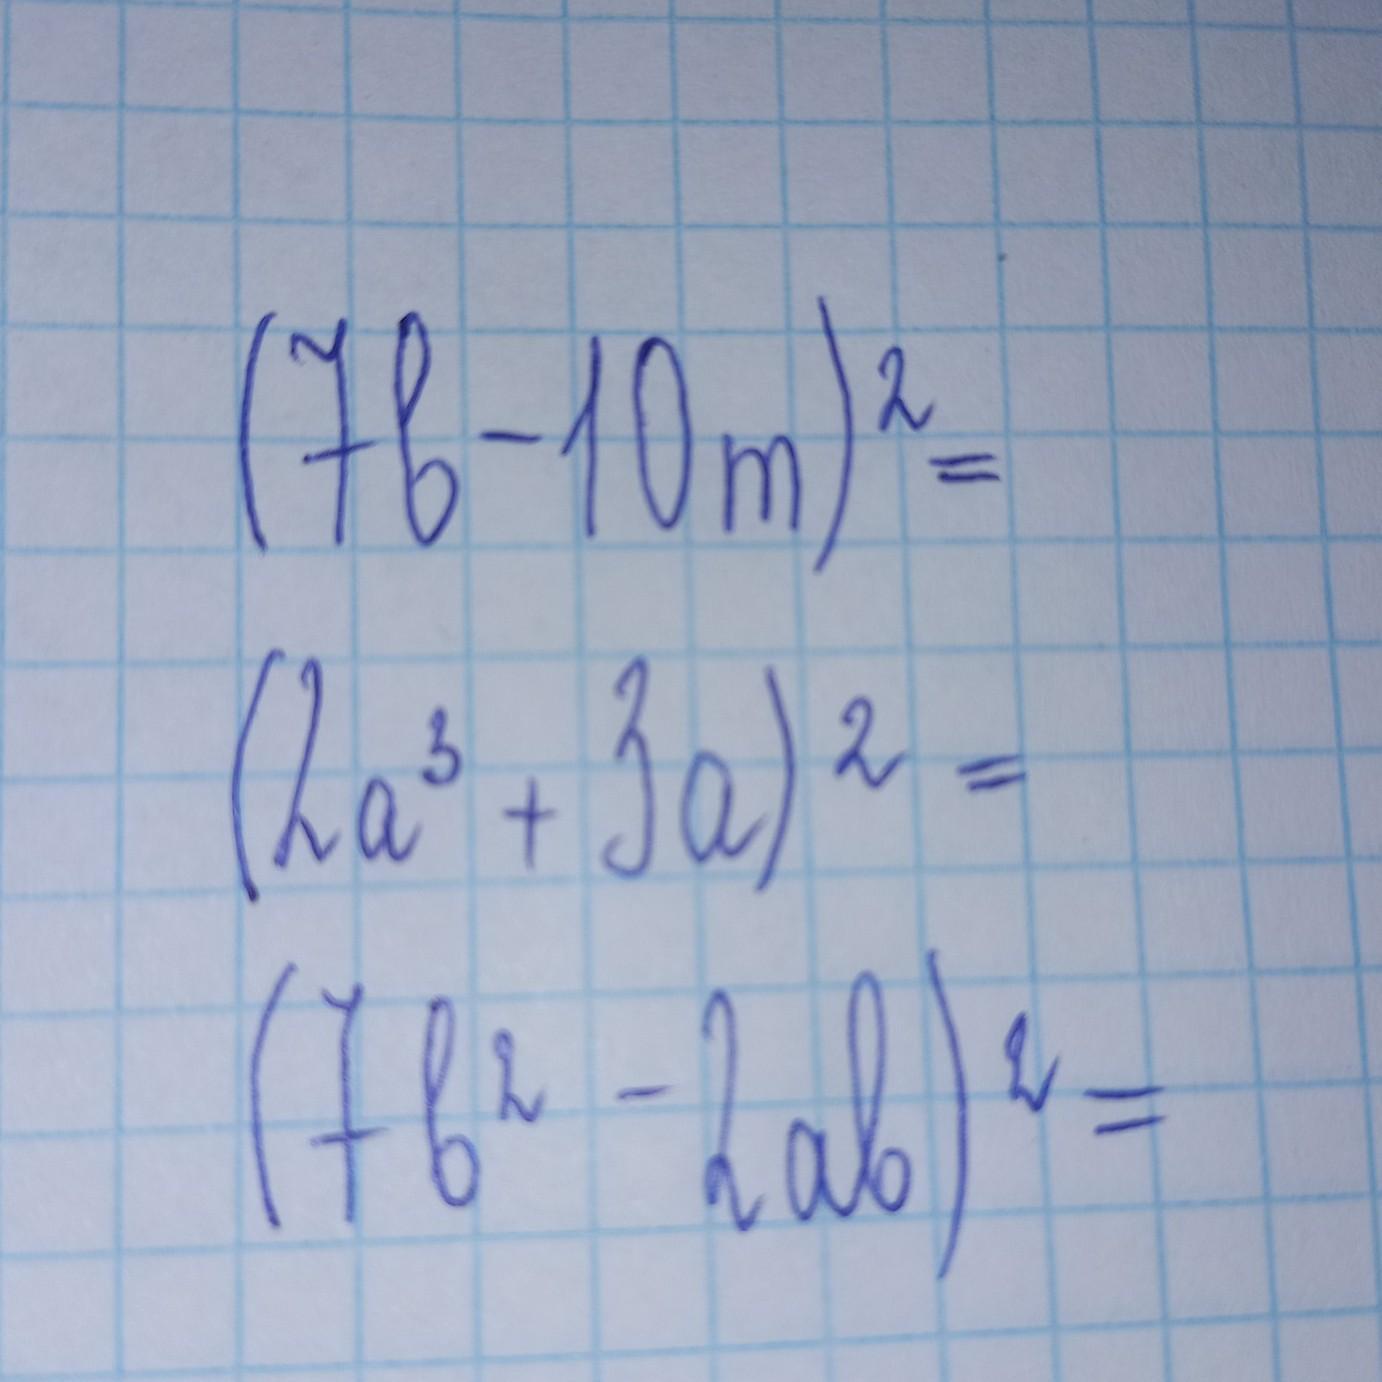 (7b-10m)²=
(2a³+3a)²=
(7b²-2ab)²=